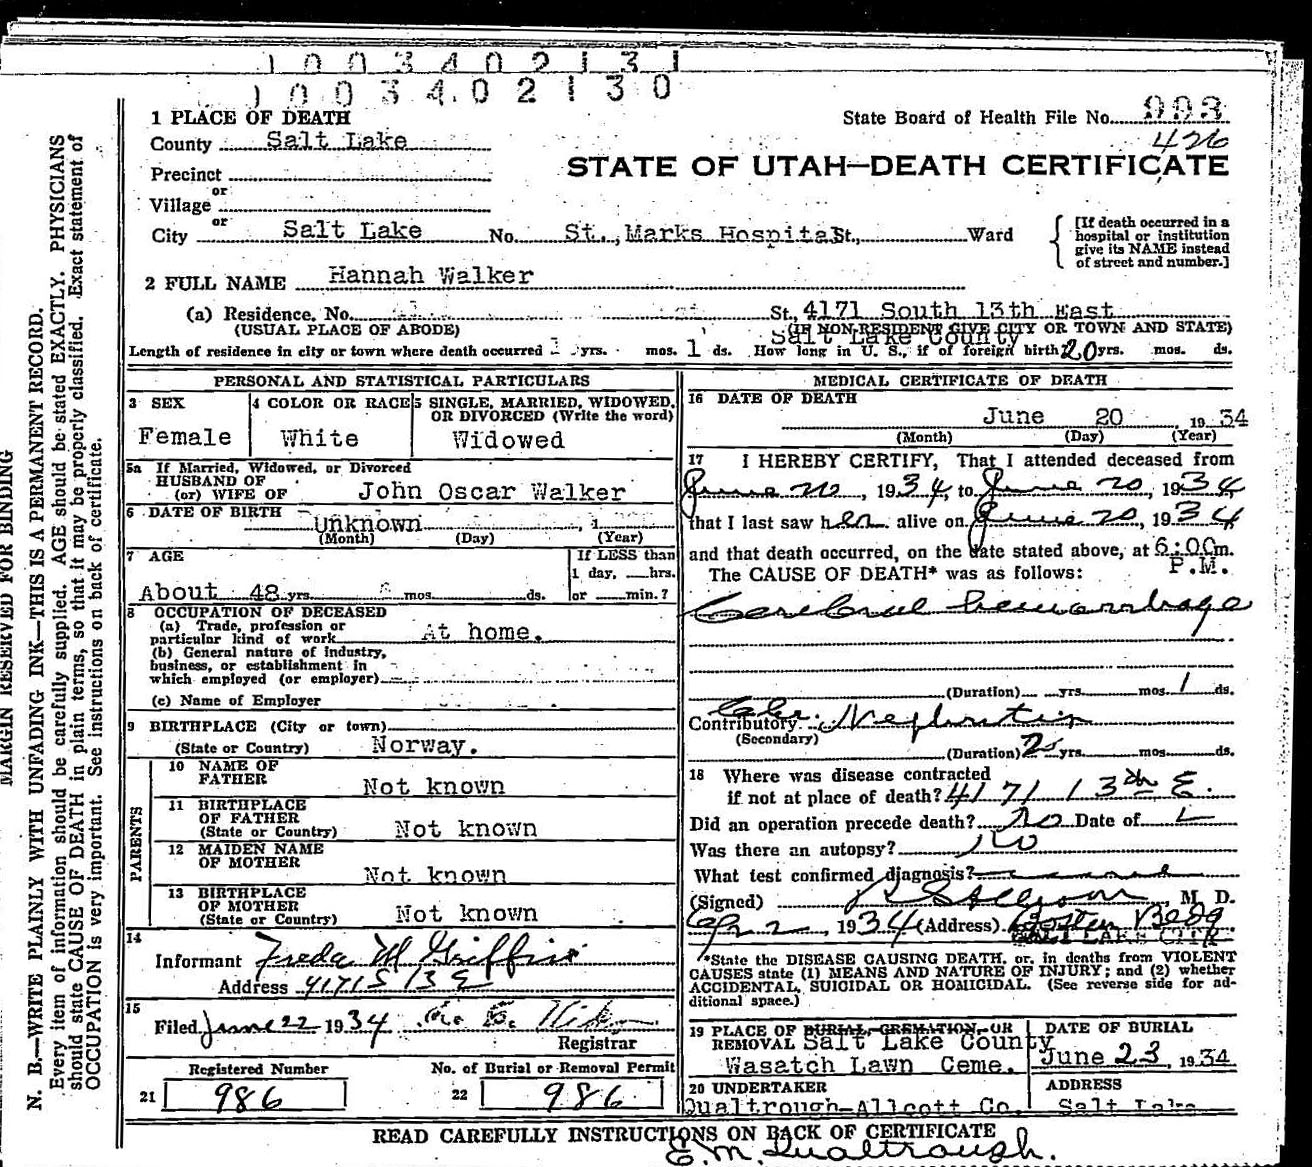 1003402131
1003402130
1 PLACE OF DEATH
State Board of Health File No. 993
County Salt Lake
426
STATE OF UTAH—DEATH CERTIFICATE
Precinct
or
Village
or
City Salt Lake No. St., Marks Hospital St., Ward
[If death occurred in a
hospital or institution
give its NAME instead
of street and number.]
2 FULL NAME Hannah Walker
(a) Residence. No. St., 4171 South 13th East
(USUAL PLACE OF ABODE)
(IF NON-RESIDENT GIVE CITY OR TOWN AND STATE)
Salt Lake County
Length of residence in city or town where death occurred yrs. mos. 1 ds. How long in U. S., if of foreign birth? 20 yrs. mos. ds.
PERSONAL AND STATISTICAL PARTICULARS
3 SEX
Female
4 COLOR OR RACE
White
5 SINGLE, MARRIED, WIDOWED,
OR DIVORCED (Write the word)
Widowed
5a If Married, Widowed, or Divorced
HUSBAND OF
(or) WIFE OF John Oscar Walker
6 DATE OF BIRTH
Unknown , 1
(Month) (Day) (Year)
7 AGE
If LESS than
1 day, hrs.
About 48 yrs. mos. ds. or min.?
8 OCCUPATION OF DECEASED
(a) Trade, profession or
particular kind of work At home.
(b) General nature of industry,
business, or establishment in
which employed (or employer)
(c) Name of Employer
9 BIRTHPLACE (City or town)
(State or Country) Norway.
PARENTS
10 NAME OF
FATHER Not known
11 BIRTHPLACE
OF FATHER
(State or Country) Not known
12 MAIDEN NAME
OF MOTHER Not known
13 BIRTHPLACE
OF MOTHER
(State or Country) Not known
14
Informant Freda M Griffin
Address 4171 S 13 E
15
Filed June 22 1934
Registrar
Registered Number
21 986
No. of Burial or Removal Permit
22 986
MEDICAL CERTIFICATE OF DEATH
16 DATE OF DEATH
June 20 1934
(Month) (Day) (Year)
17 I HEREBY CERTIFY, That I attended deceased from
June 20, 1934, to June 20, 1934
that I last saw her alive on June 20, 1934
and that death occurred, on the date stated above, at 6:00 m.
P.M.
The CAUSE OF DEATH* was as follows:
Cerebral hemorrhage
(Duration) yrs. mos. 1 ds.
Contributory Nephritis
(Secondary)
(Duration) 2 yrs. mos. ds.
18 Where was disease contracted
if not at place of death? 4171 13th E.
Did an operation precede death? No Date of
Was there an autopsy? No
What test confirmed diagnosis?
(Signed) , M. D.
, 1934 (Address) Boston Bldg
SALT LAKE CITY
*State the DISEASE CAUSING DEATH, or, in deaths from VIOLENT
CAUSES state (1) MEANS AND NATURE OF INJURY; and (2) whether
ACCIDENTAL, SUICIDAL OR HOMICIDAL. (See reverse side for ad-
ditional space.)
19 PLACE OF BURIAL, CREMATION, OR
REMOVAL Salt Lake County
Wasatch Lawn Ceme.
DATE OF BURIAL
June 23, 1934
20 UNDERTAKER
Qualtrough-Allcott Co.
ADDRESS
Salt Lake
READ CAREFULLY INSTRUCTIONS ON BACK OF CERTIFICATE
E. M. Qualtrough.
MARGIN RESERVED FOR BINDING
N. B.—WRITE PLAINLY WITH UNFADING INK—THIS IS A PERMANENT RECORD.
Every item of information should be carefully supplied. AGE should be stated EXACTLY. PHYSICIANS
should state CAUSE OF DEATH in plain terms, so that it may be properly classified. Exact statement of
OCCUPATION is very important. See instructions on back of certificate.